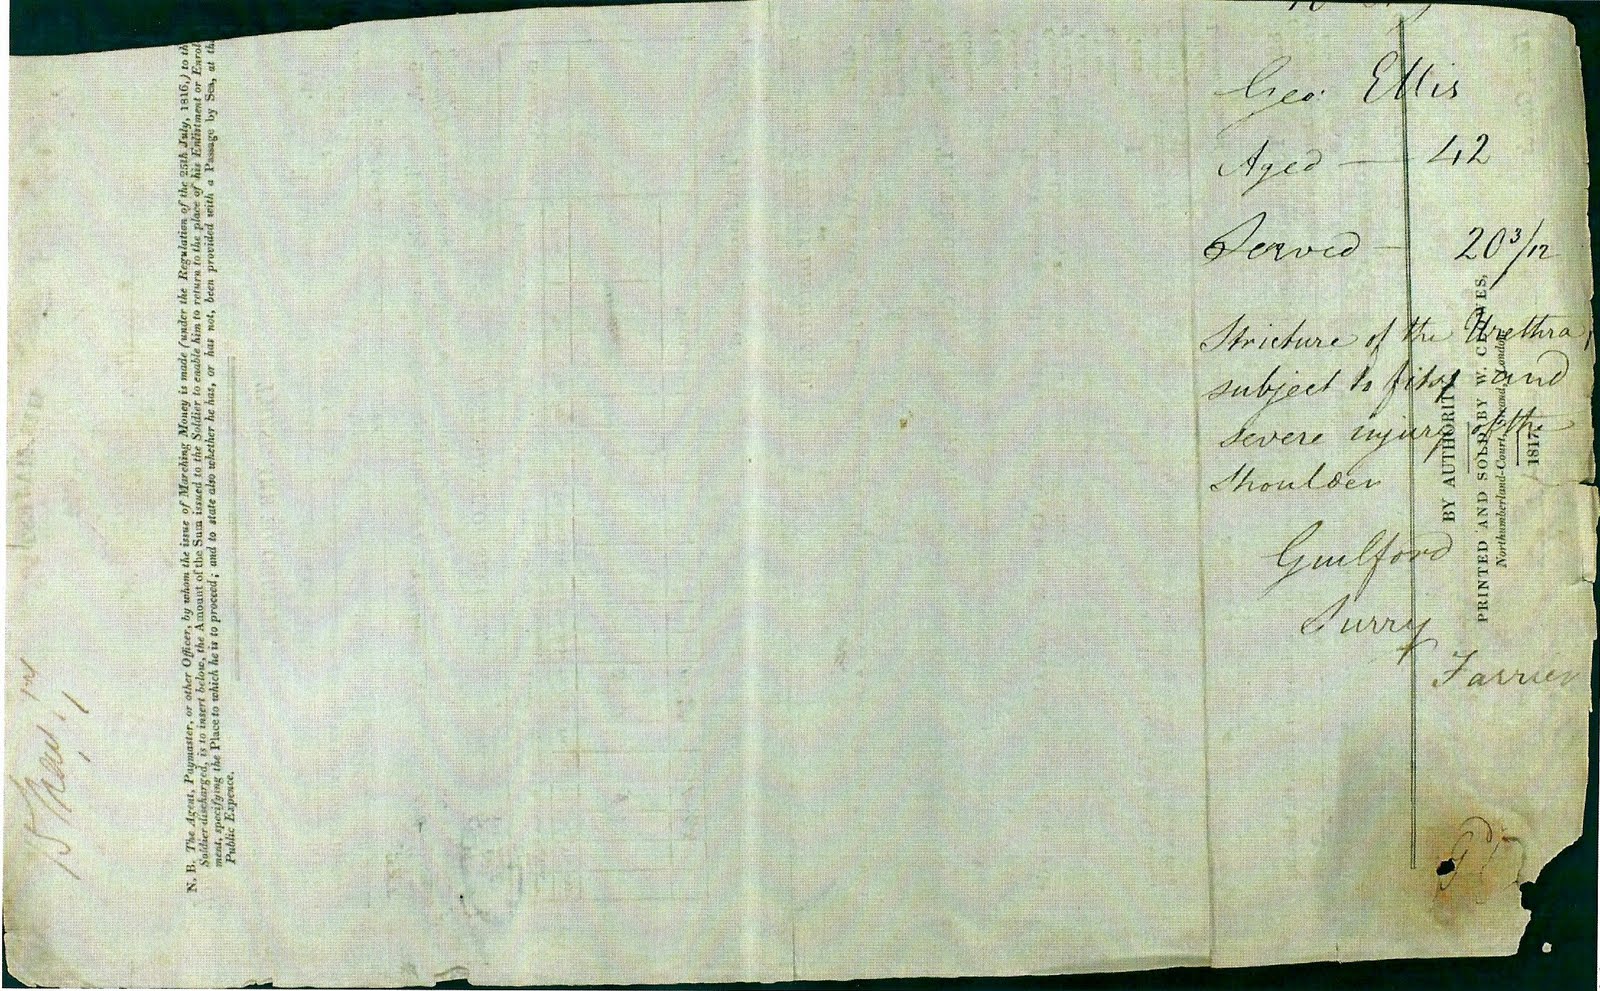 Geo: Ellis
Aged — 42
Served — 20 3/12
Stricture of the Urethra,
subject to fits, and
severe injury of the
shoulder
Guilford
Surry
Farrier
BY AUTHORITY
PRINTED AND SOLD BY W. CLOWES,
Northumberland-Court, Strand, London.
1817.
N. B. The Agent, Paymaster, or other Officer, by whom the issue of Marching Money is made (under the Regulation of the 25th July, 1816,) to th
Soldier discharged, is to insert below, the Amount of the Sum issued to the Soldier to enable him to return to the place of his Enlistment or Enrol
ment, specifying the Place to which he is to proceed; and to state also whether he has, or has not, been provided with a Passage by Sea, at th
Public Expence.